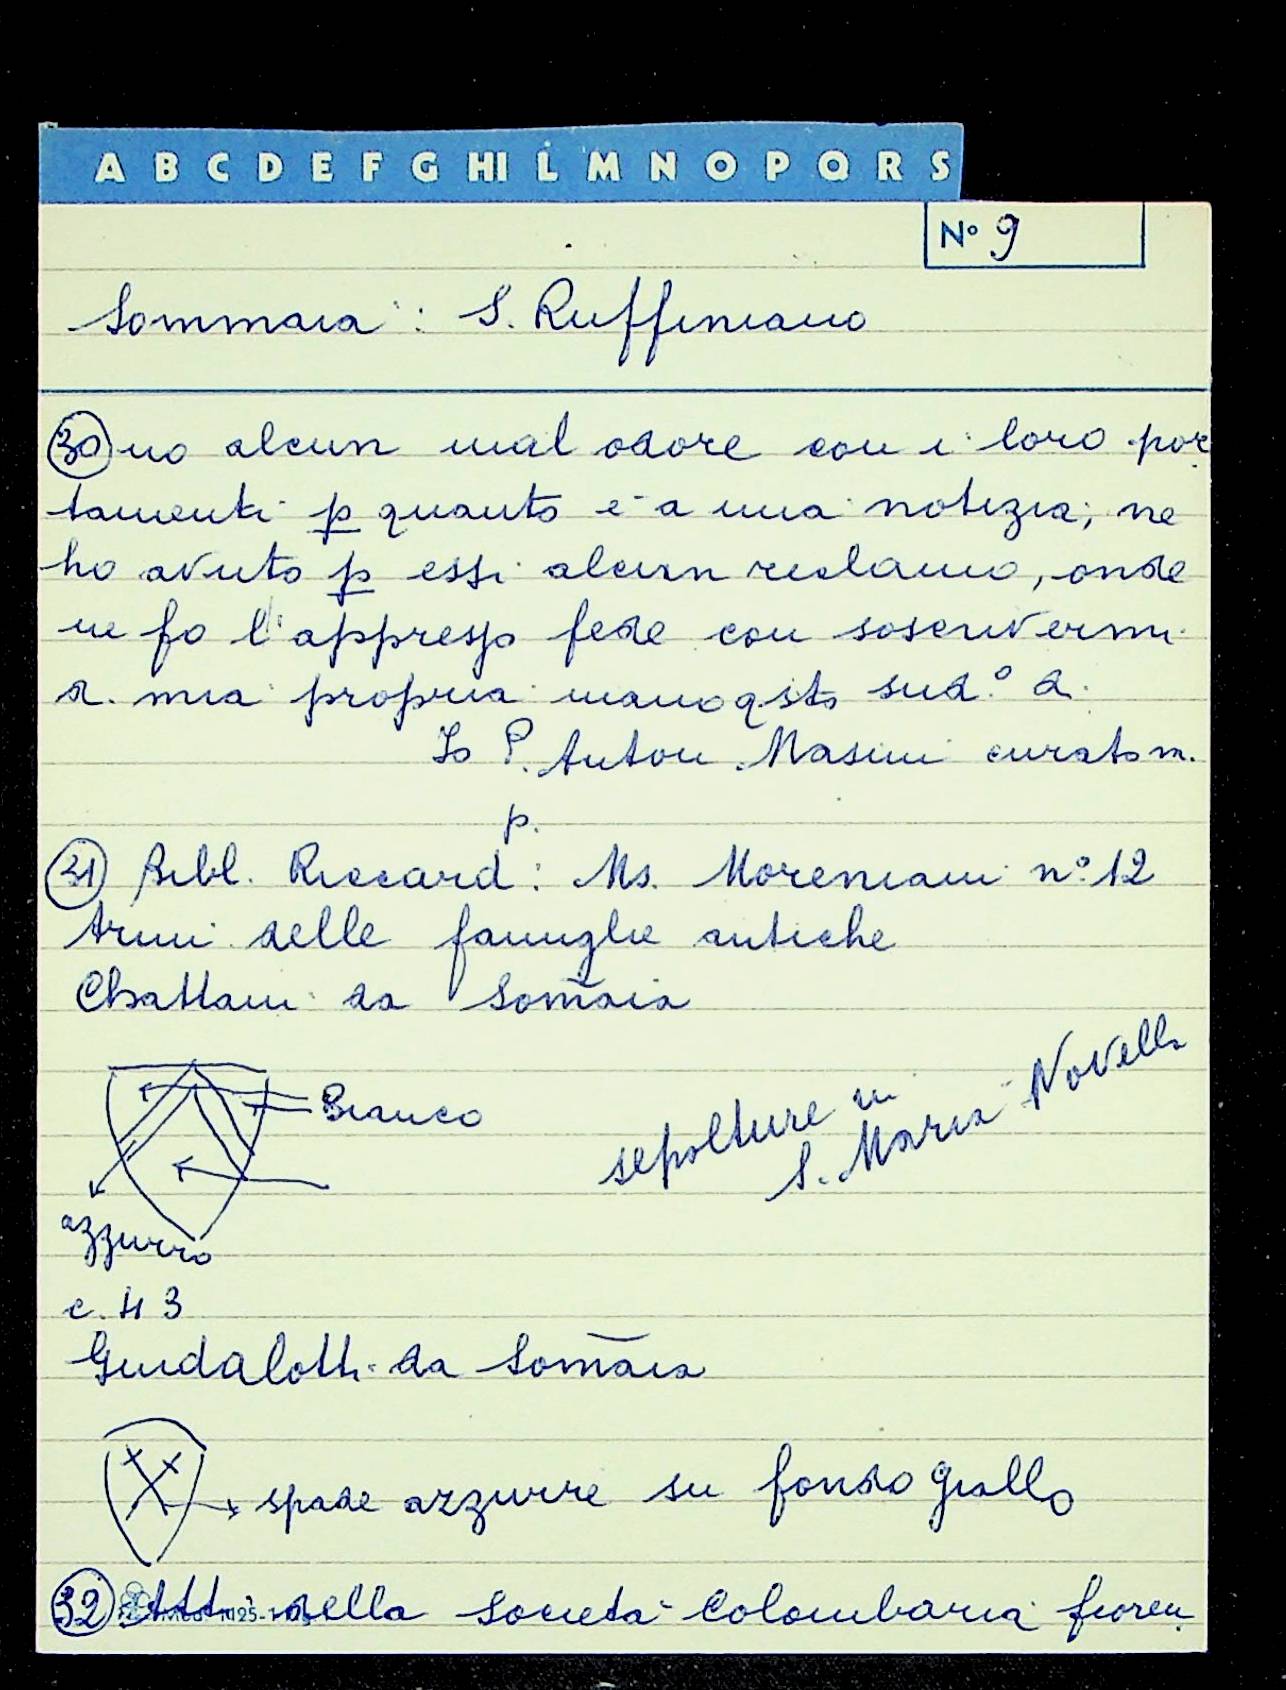 A B C D E F G HI L M N O P Q R S
N° 9
Sommaia : S. Ruffiniano
30 no alcun mal odore con i loro por
tamenti p quanto è a mia notizia; ne
ho avuto p essi alcun reclamo, onde
ne fo l'appresso fede con soscrivermi
a. mia propria mano qsto sud.° d.
Io P. Anton Masini curato m.
p.
31 Bibl. Riccard: Ms. Moreniani n° 12
Armi delle famiglie antiche
Chattani da Som̄aia
Bianco
sepolture in
S. Maria Novella
azzurro
c. 43
Guidalotti da Som̄aia
spade azzurre su fondo giallo
32 Atti della società Colombaria fioren